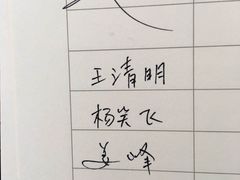 王清明
杨笑飞
姜峰